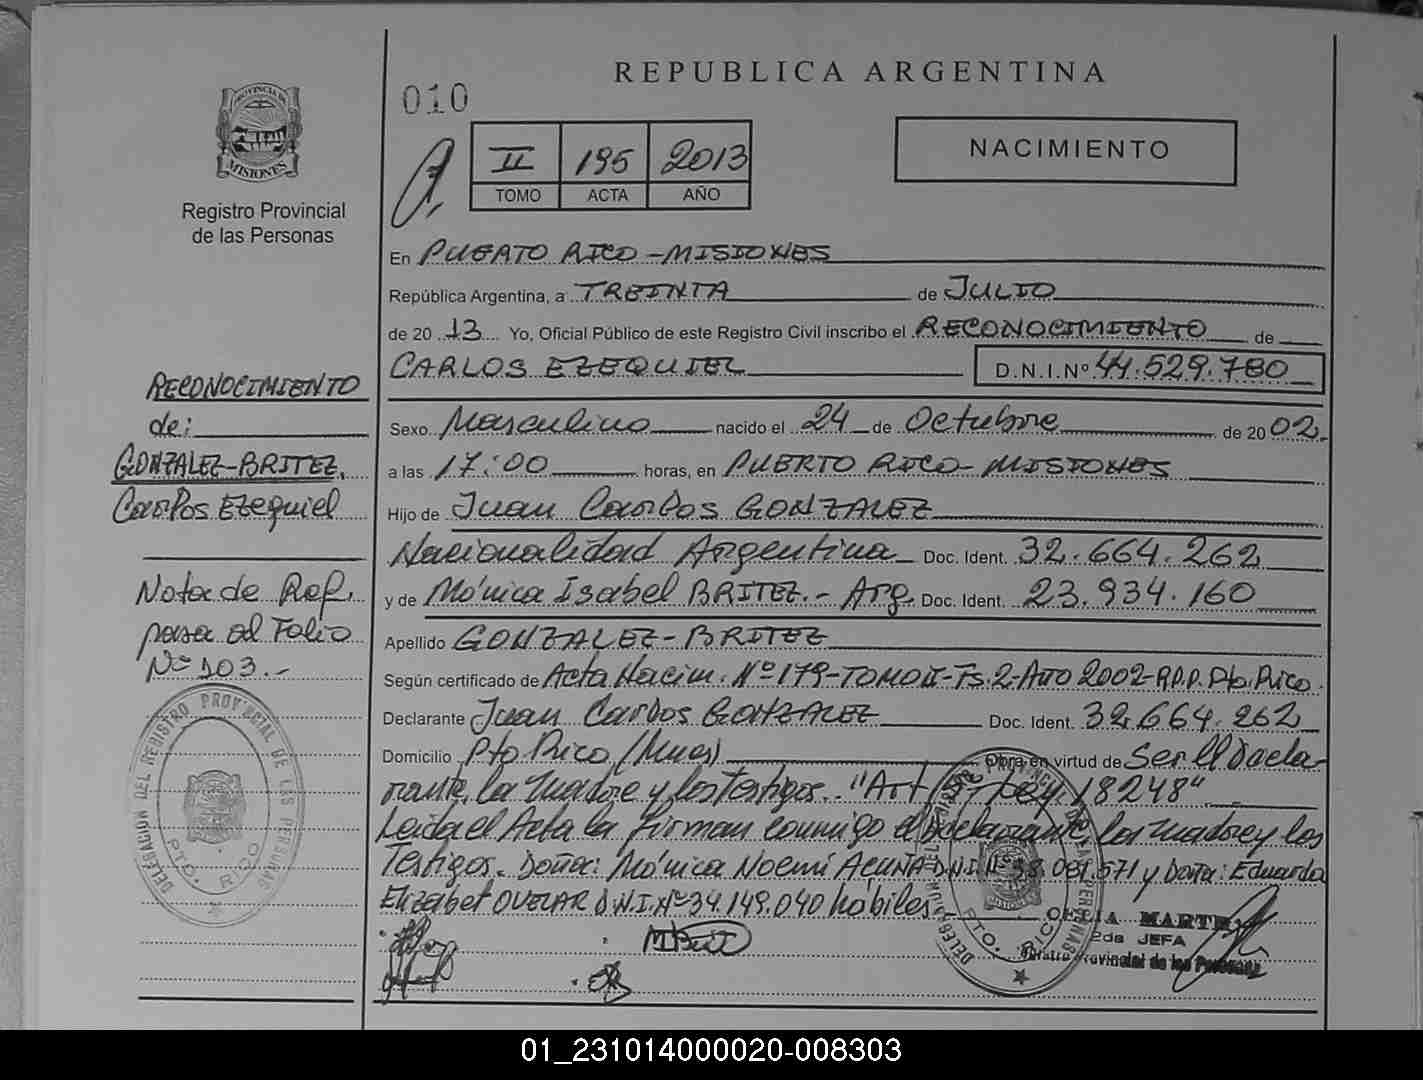 REPUBLICA ARGENTINA
010
PROVINCIA DE
MISIONES
Registro Provincial
de las Personas
II 195 2013
TOMO ACTA AÑO
NACIMIENTO
En PUERTO RICO - MISIONES
República Argentina, a TREINTA de JULIO
de 20 13 Yo, Oficial Público de este Registro Civil inscribo el RECONOCIMIENTO de
CARLOS EZEQUIEL D.N.I.Nº 44.529.780
RECONOCIMIENTO
de:
GONZALEZ-BRITEZ,
Carlos Ezequiel
Sexo Masculino nacido el 24 de Octubre de 20 02.
a las 17:00 horas, en PUERTO RICO - MISIONES
Hijo de Juan Carlos GONZALEZ
Nacionalidad Argentina Doc. Ident. 32.664.262
y de Mónica Isabel BRITEZ.- Arg. Doc. Ident. 23.934.160
Apellido GONZALEZ-BRITEZ
Nota de Ref.
pasa al Folio
Nº 103.-
Según certificado de Acta Nacim. Nº 179-TOMO II-Fs.2-Año 2002-R.P.P. Pto. Rico.
Declarante Juan Carlos GONZALEZ Doc. Ident. 32.664.262
Domicilio Pto Rico (Mnes) Obra en virtud de Ser el Decla-
rante, la madre y los Testigos. "Art Ley 18248"
Leida el Acta la firman conmigo el declarante, la madre y los
Testigos. Doña: Mónica Noemí ACUÑA D.N.I. Nº 38.081.571 y Doña: Eduarda
Elizabet OVELAR D.N.I. Nº 34.149.040 hábiles
DELEGACION DEL REGISTRO PROVINCIAL DE LAS PERSONAS
PTO. RICO
DELEG PERSONAS
PTO. RICO
MARTE
2da JEFA
Registro Provincial de las Personas
01_231014000020-008303